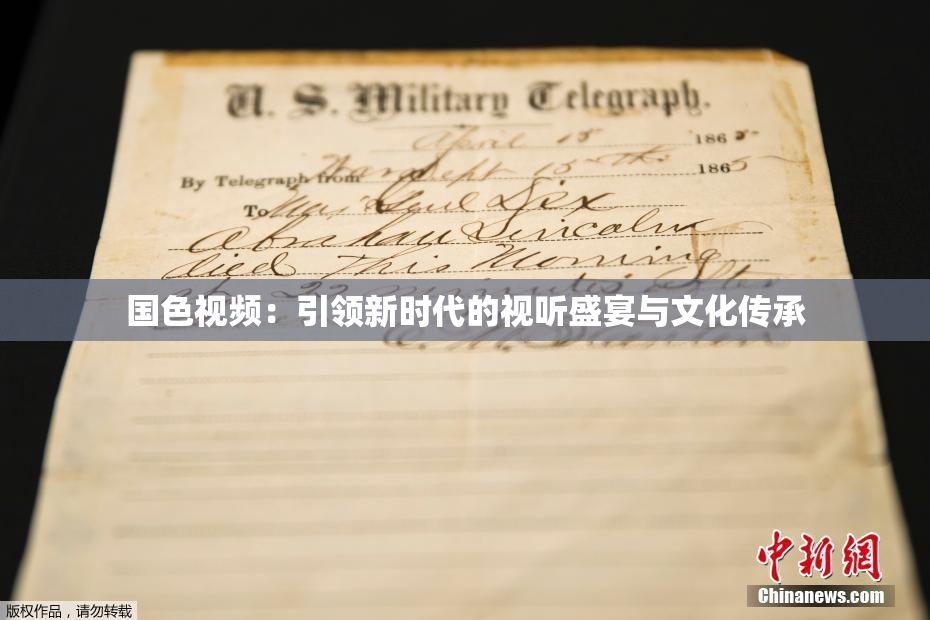 U. S. Military Telegraph.
April 15 1865
By Telegraph from War Dept 15th 1865
To Maj Genl Dix
Abraham Lincoln
died This Morning
at 22 minutes after
国色视频：引领新时代的视听盛宴与文化传承
E. M. Stanton
中新網
Chinanews.com
版权作品，请勿转载